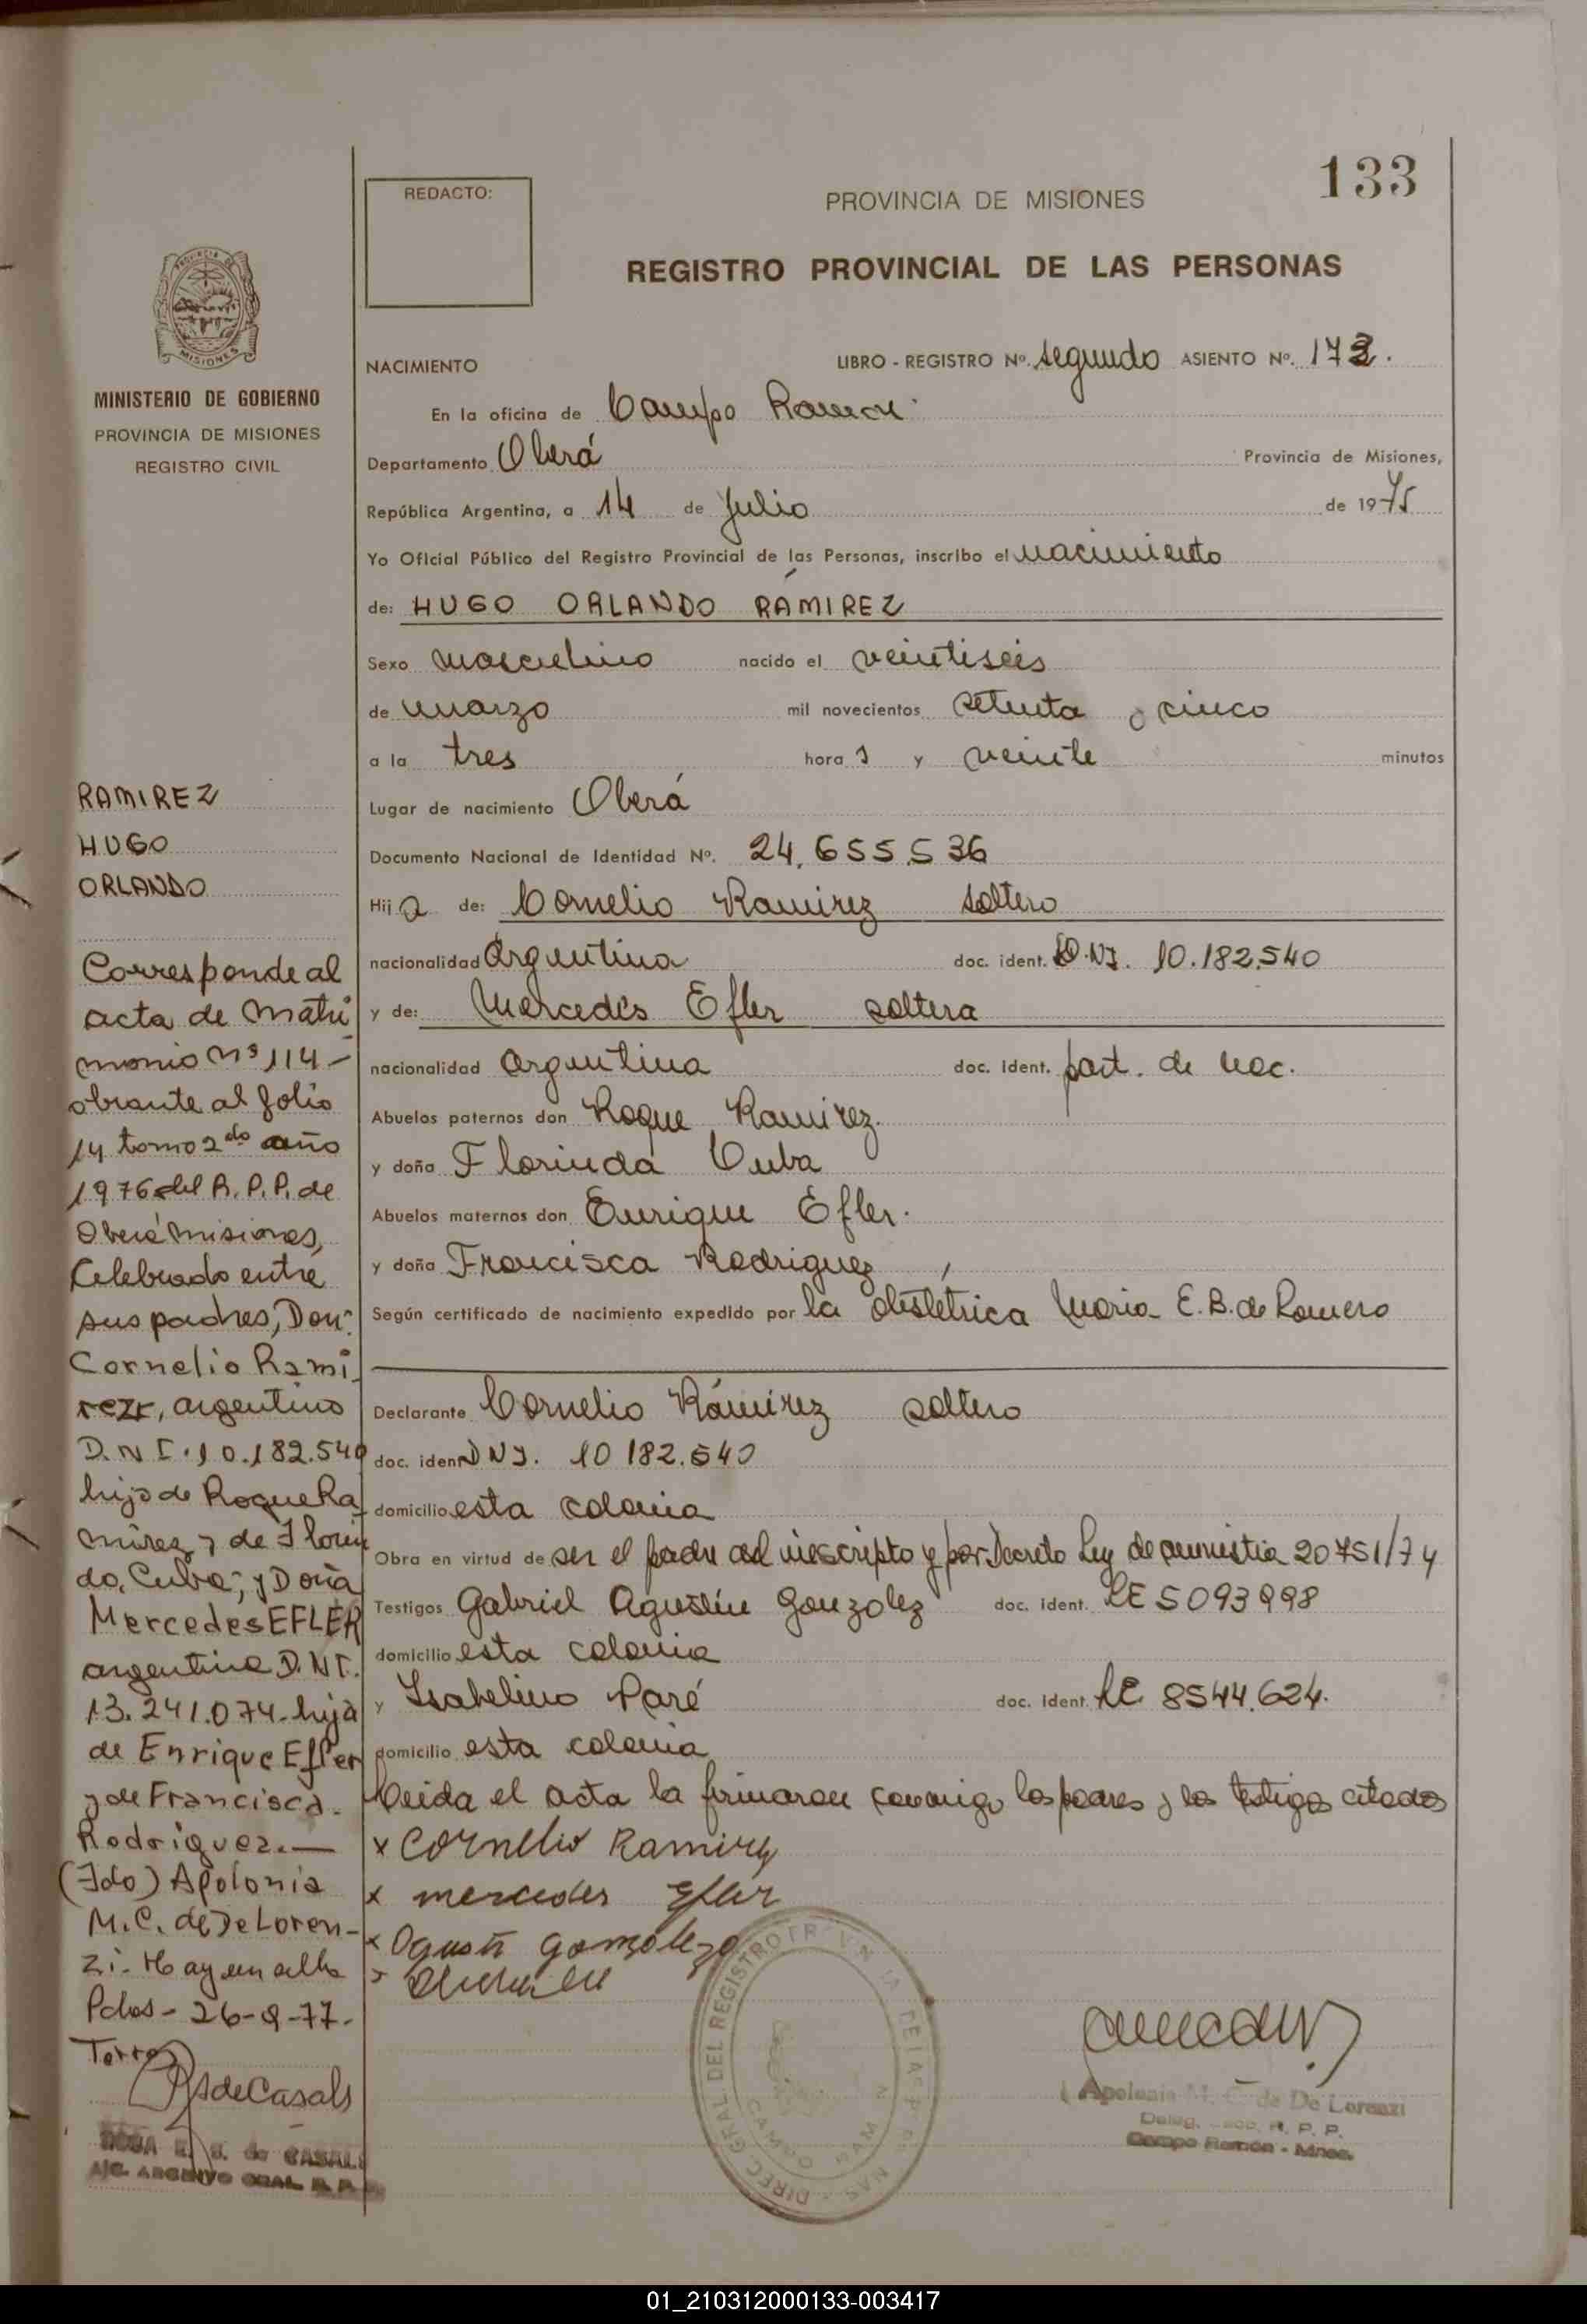 133
REDACTO:
PROVINCIA DE MISIONES
REGISTRO PROVINCIAL DE LAS PERSONAS
MISIONES
MINISTERIO DE GOBIERNO
PROVINCIA DE MISIONES
REGISTRO CIVIL
NACIMIENTO LIBRO - REGISTRO Nº. segundo ASIENTO Nº.
En la oficina de Campo Ramon
Departamento Oberá Provincia de Misiones,
República Argentina, a 14 de Julio de 1975
Yo Oficial Público del Registro Provincial de las Personas, inscribo el nacimiento
de: HUGO ORLANDO RAMIREZ
Sexo masculino nacido el veintiseis
de marzo mil novecientos setenta y cinco
a la tres hora s y veinte minutos
Lugar de nacimiento Oberá
Documento Nacional de Identidad Nº. 24.655.536
Hij o de: Cornelio Ramirez soltero
nacionalidad Argentina doc. ident. D.NI. 10.182.540
y de: Mercedes Efler soltera
nacionalidad argentina doc. ident. part. de nac.
Abuelos paternos don Roque Ramirez.
y doña Florinda Cuba
Abuelos maternos don Enrique Efler.
y doña Francisca Rodriguez
Según certificado de nacimiento expedido por la obstétrica Maria E.B. de Romero
Declarante Cornelio Ramirez soltero
doc. iden DNI. 10 182.540
domicilio esta colonia
Obra en virtud de ser el padre del inscripto y por Decreto Ley de amnistia 20751/74
Testigos Gabriel Agustin Gonzolez doc. ident. LE 5093998
domicilio esta colonia
y Isabelino Paré doc. ident. LE 8544.624.
domicilio esta colonia
Leida el acta la firmaron conmigo los padres y los testigos citados
x Cornelio Ramirez
x mercedes Efler
x Agusti gomzolez
RAMIREZ
HUGO
ORLANDO
Corresponde al
acta de Matri
monio nº 114-
obrante al folio
14 tomo 2do año
1976 del R.P.P. de
Oberá Misiones,
Celebrado entre
sus padres, Don:
Cornelio Rami
rez, argentino
D.N I. 10.182.540
hijo de Roque Ra
mirez y de Florin
da, Cuba; y Doña
Mercedes EFLER
argentina D.NI.
13.241.074- hija
de Enrique Efler
y de Francisca.
Rodriguez.—
(Fdo) Apolonia
M.C. de De Loren-
zi- Hay un sello
Pdas- 26-9-77-
Torres
RSdeCasals
ROSA E. S. de CASALS
A/C. ARCHIVO GRAL. R. P. P.
DIREC. GRAL. DEL REGISTRO PROVINCIAL DE LAS PERSONAS
CAMPO RAMON
Apolonia M. C. de De Lorenzi
Deleg. R. P. P.
Campo Ramón - Mnes.
01_210312000133-003417